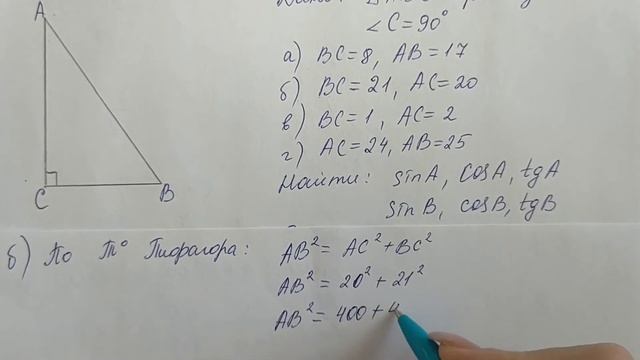 ∠C=90°
а) BC=8, AB=17
б) BC=21, AC=20
в) BC=1, AC=2
г) AC=24, AB=25
Найти: sinA, cosA, tgA
sinB, cosB, tgB
A
C
B
б) По т° Пифагора: AB²=AC²+BC²
AB²=20²+21²
AB²=400+4